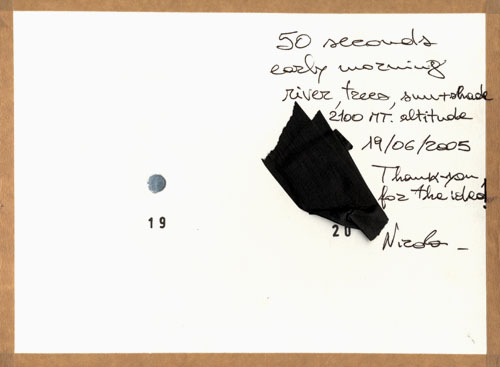 50 seconds
early morning
river, trees, sun+shade
2100 MT. altitude
19/06/2005
Thank-you
for the idea!
Nicola -
19
20